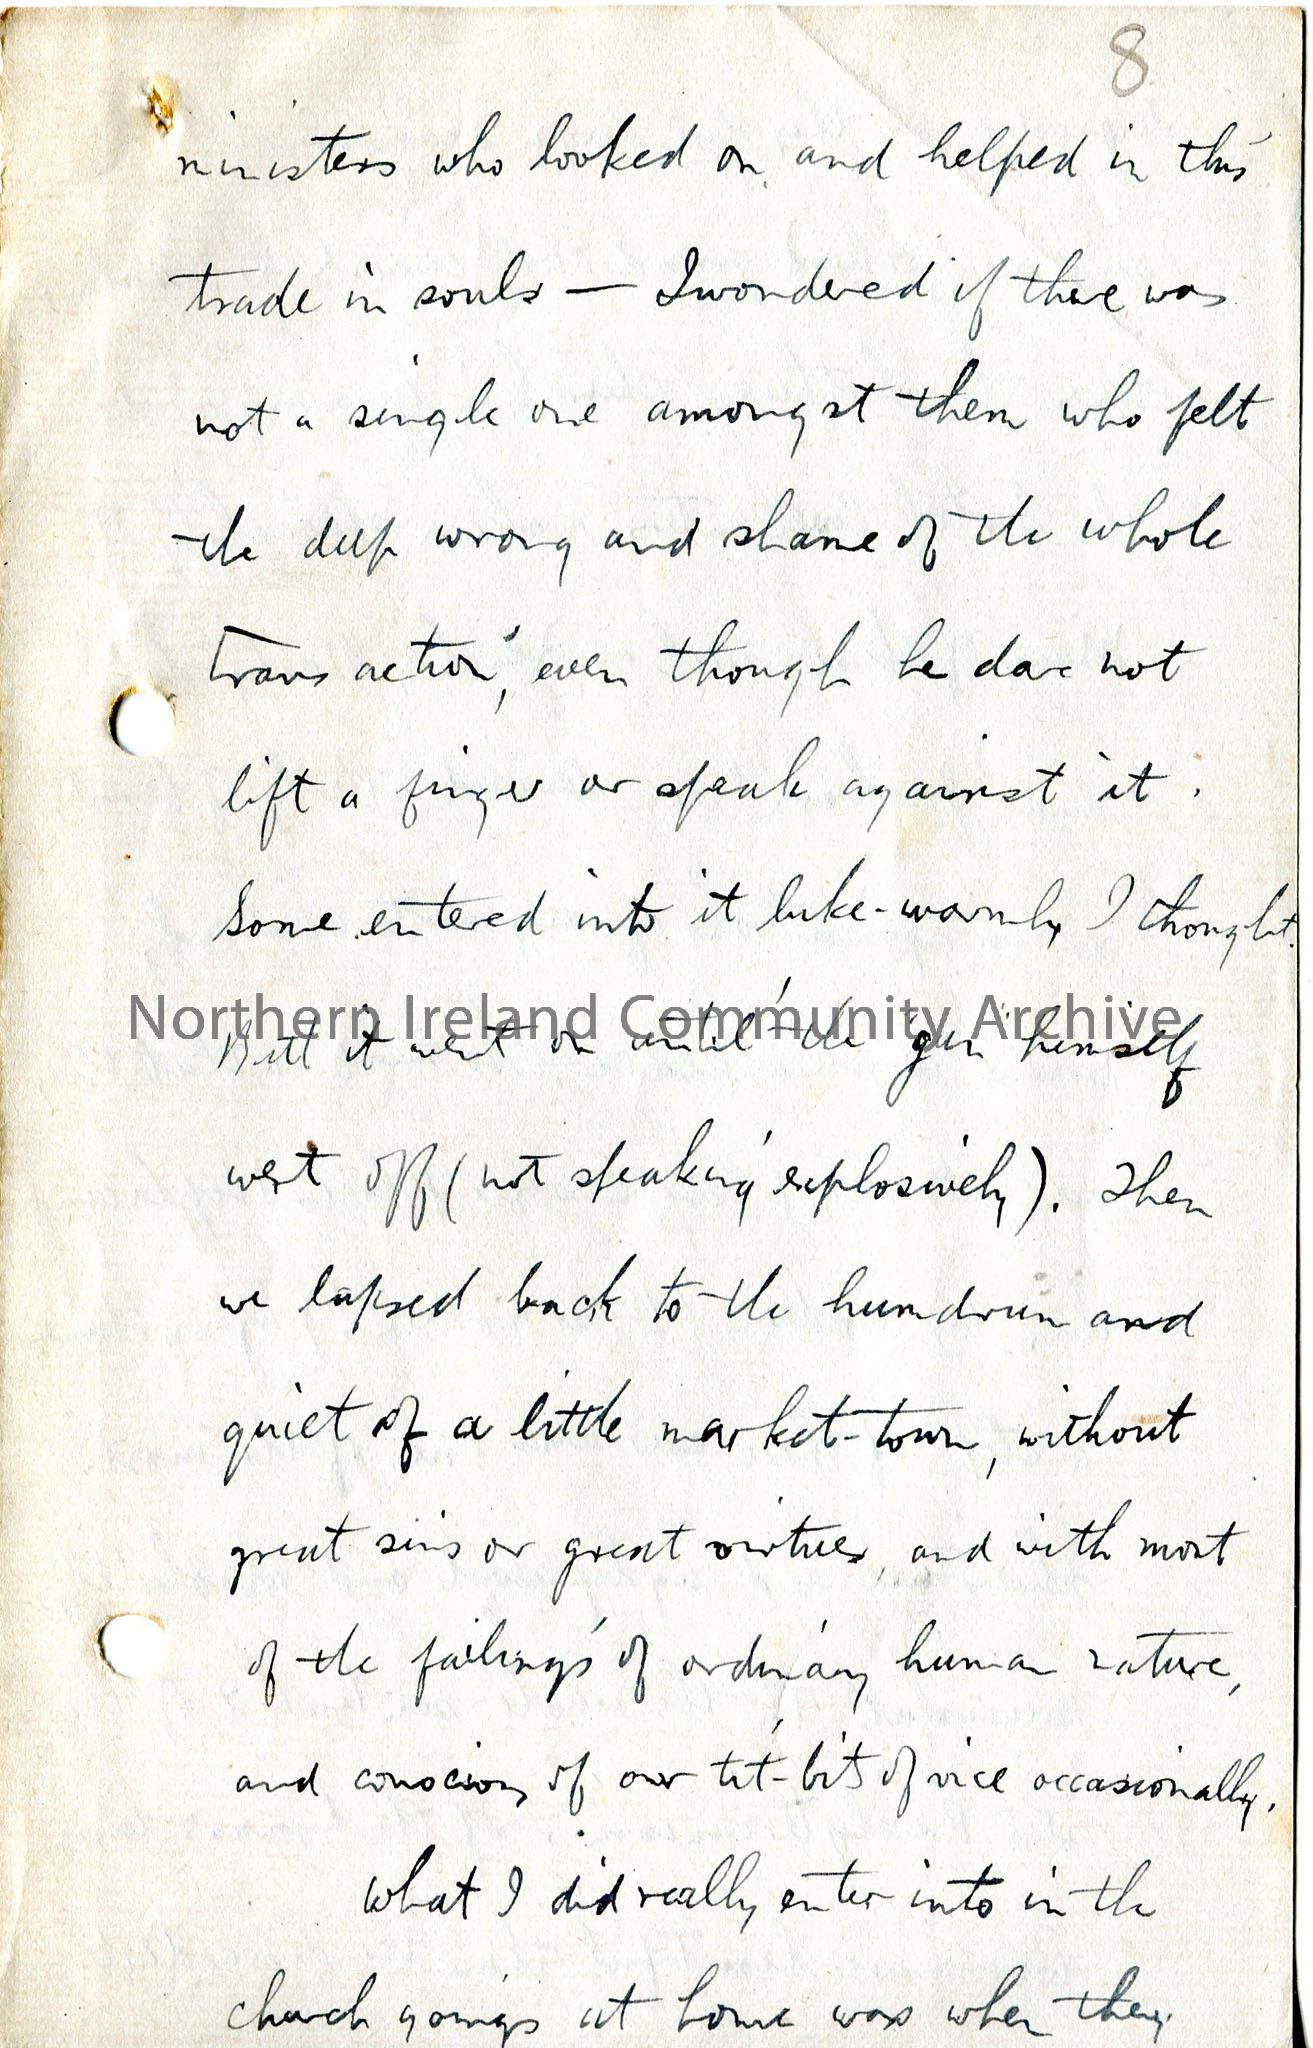 8
ministers who looked on and helped in this
trade in souls — I wondered if there was
not a single one amongst them who felt
the deep wrong and shame of the whole
transaction, even though he dare not
lift a finger or speak against it.
Some entered into it luke-warmly I thought.
Northern Ireland Community Archive
But it went on until the 'gun' himself
went off (not speaking explosively). Then
we lapsed back to the humdrum and
quiet of a little market-town, without
great sins or great virtues, and with most
of the failings of ordinary human nature,
and conscious of our tit-bits of vice occasionally.
What I did really enter into in the
church goings at home was when they